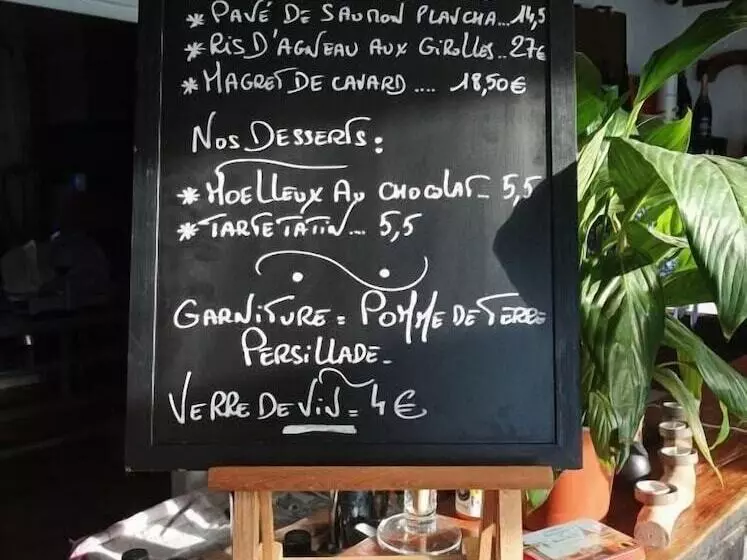 * PAVÉ DE SAUMON PLANCHA...14,5
* RIS D'AGNEAU AUX GIROLLES..27€
* MAGRET DE CANARD .... 18,50€
NOS DESSERTS:
* MOELLEUX AU CHOCOLAT_ 5,5
* TARTE TATIN... 5,5
GARNITURE = POMME DE TERRE
PERSILLADE_
VERRE DE VIN = 4€